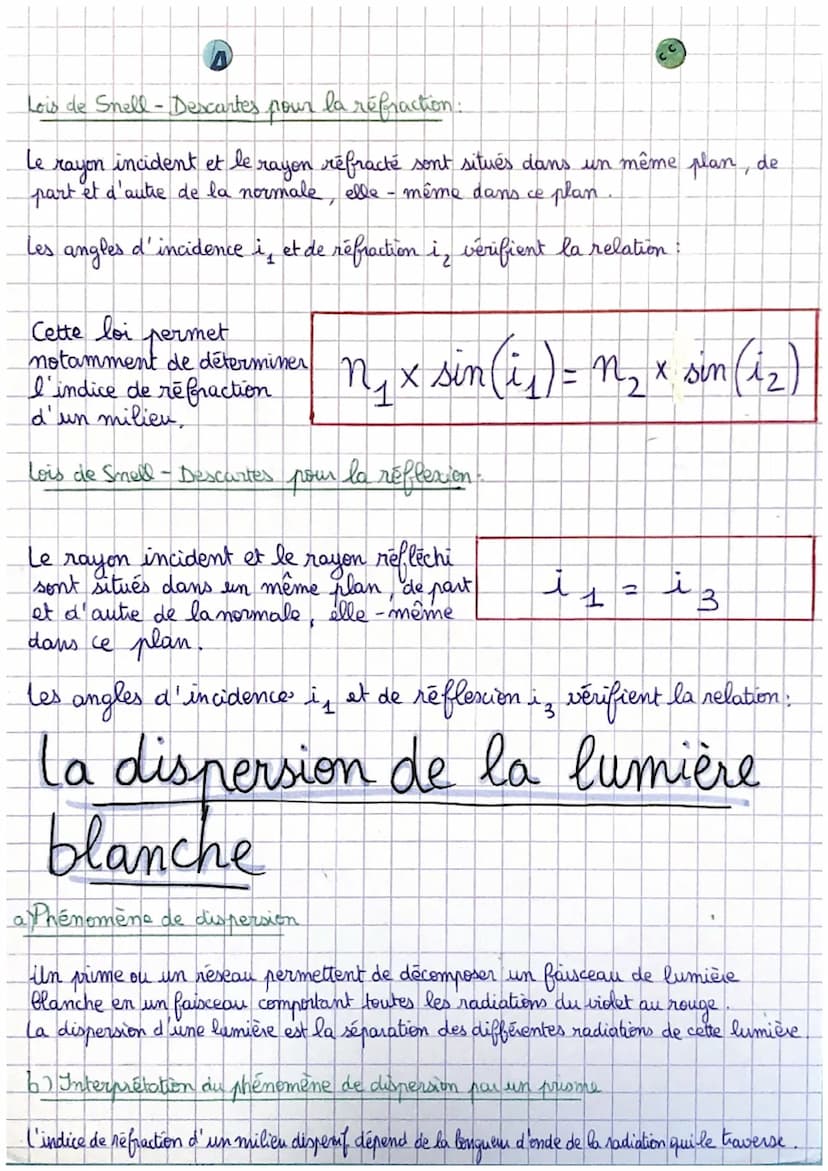 Lois de Snell - Descartes pour la réfraction :
Le rayon incident et le rayon réfracté sont situés dans un même plan, de
part et d'autre de la normale, elle - même dans ce plan.
Les angles d'incidence i₁ et de réfraction i₂ vérifient la relation :
Cette loi permet
notamment de déterminer
l'indice de réfraction
d'un milieu.
n₁ x sin(i₁) = n₂ x sin(i₂)
Lois de Snell - Descartes pour la réflexion.
Le rayon incident et le rayon réfléchi
sont situés dans un même plan, de part
et d'autre de la normale, elle - même
dans ce plan.
i₁ = i₃
Les angles d'incidence i₁ et de réflexion i₃ vérifient la relation :
La dispersion de la lumière
blanche
a) Phénomène de dispersion
Un prime ou un réseau permettent de décomposer un faisceau de lumière
blanche en un faisceau comportant toutes les radiations du violet au rouge.
La dispersion d'une lumière est la séparation des différentes radiations de cette lumière.
b) Interprétation du phénomène de dispersion par un prisme
L'indice de réfraction d'un milieu dispersif dépend de la longueur d'onde de la radiation qui le traverse.